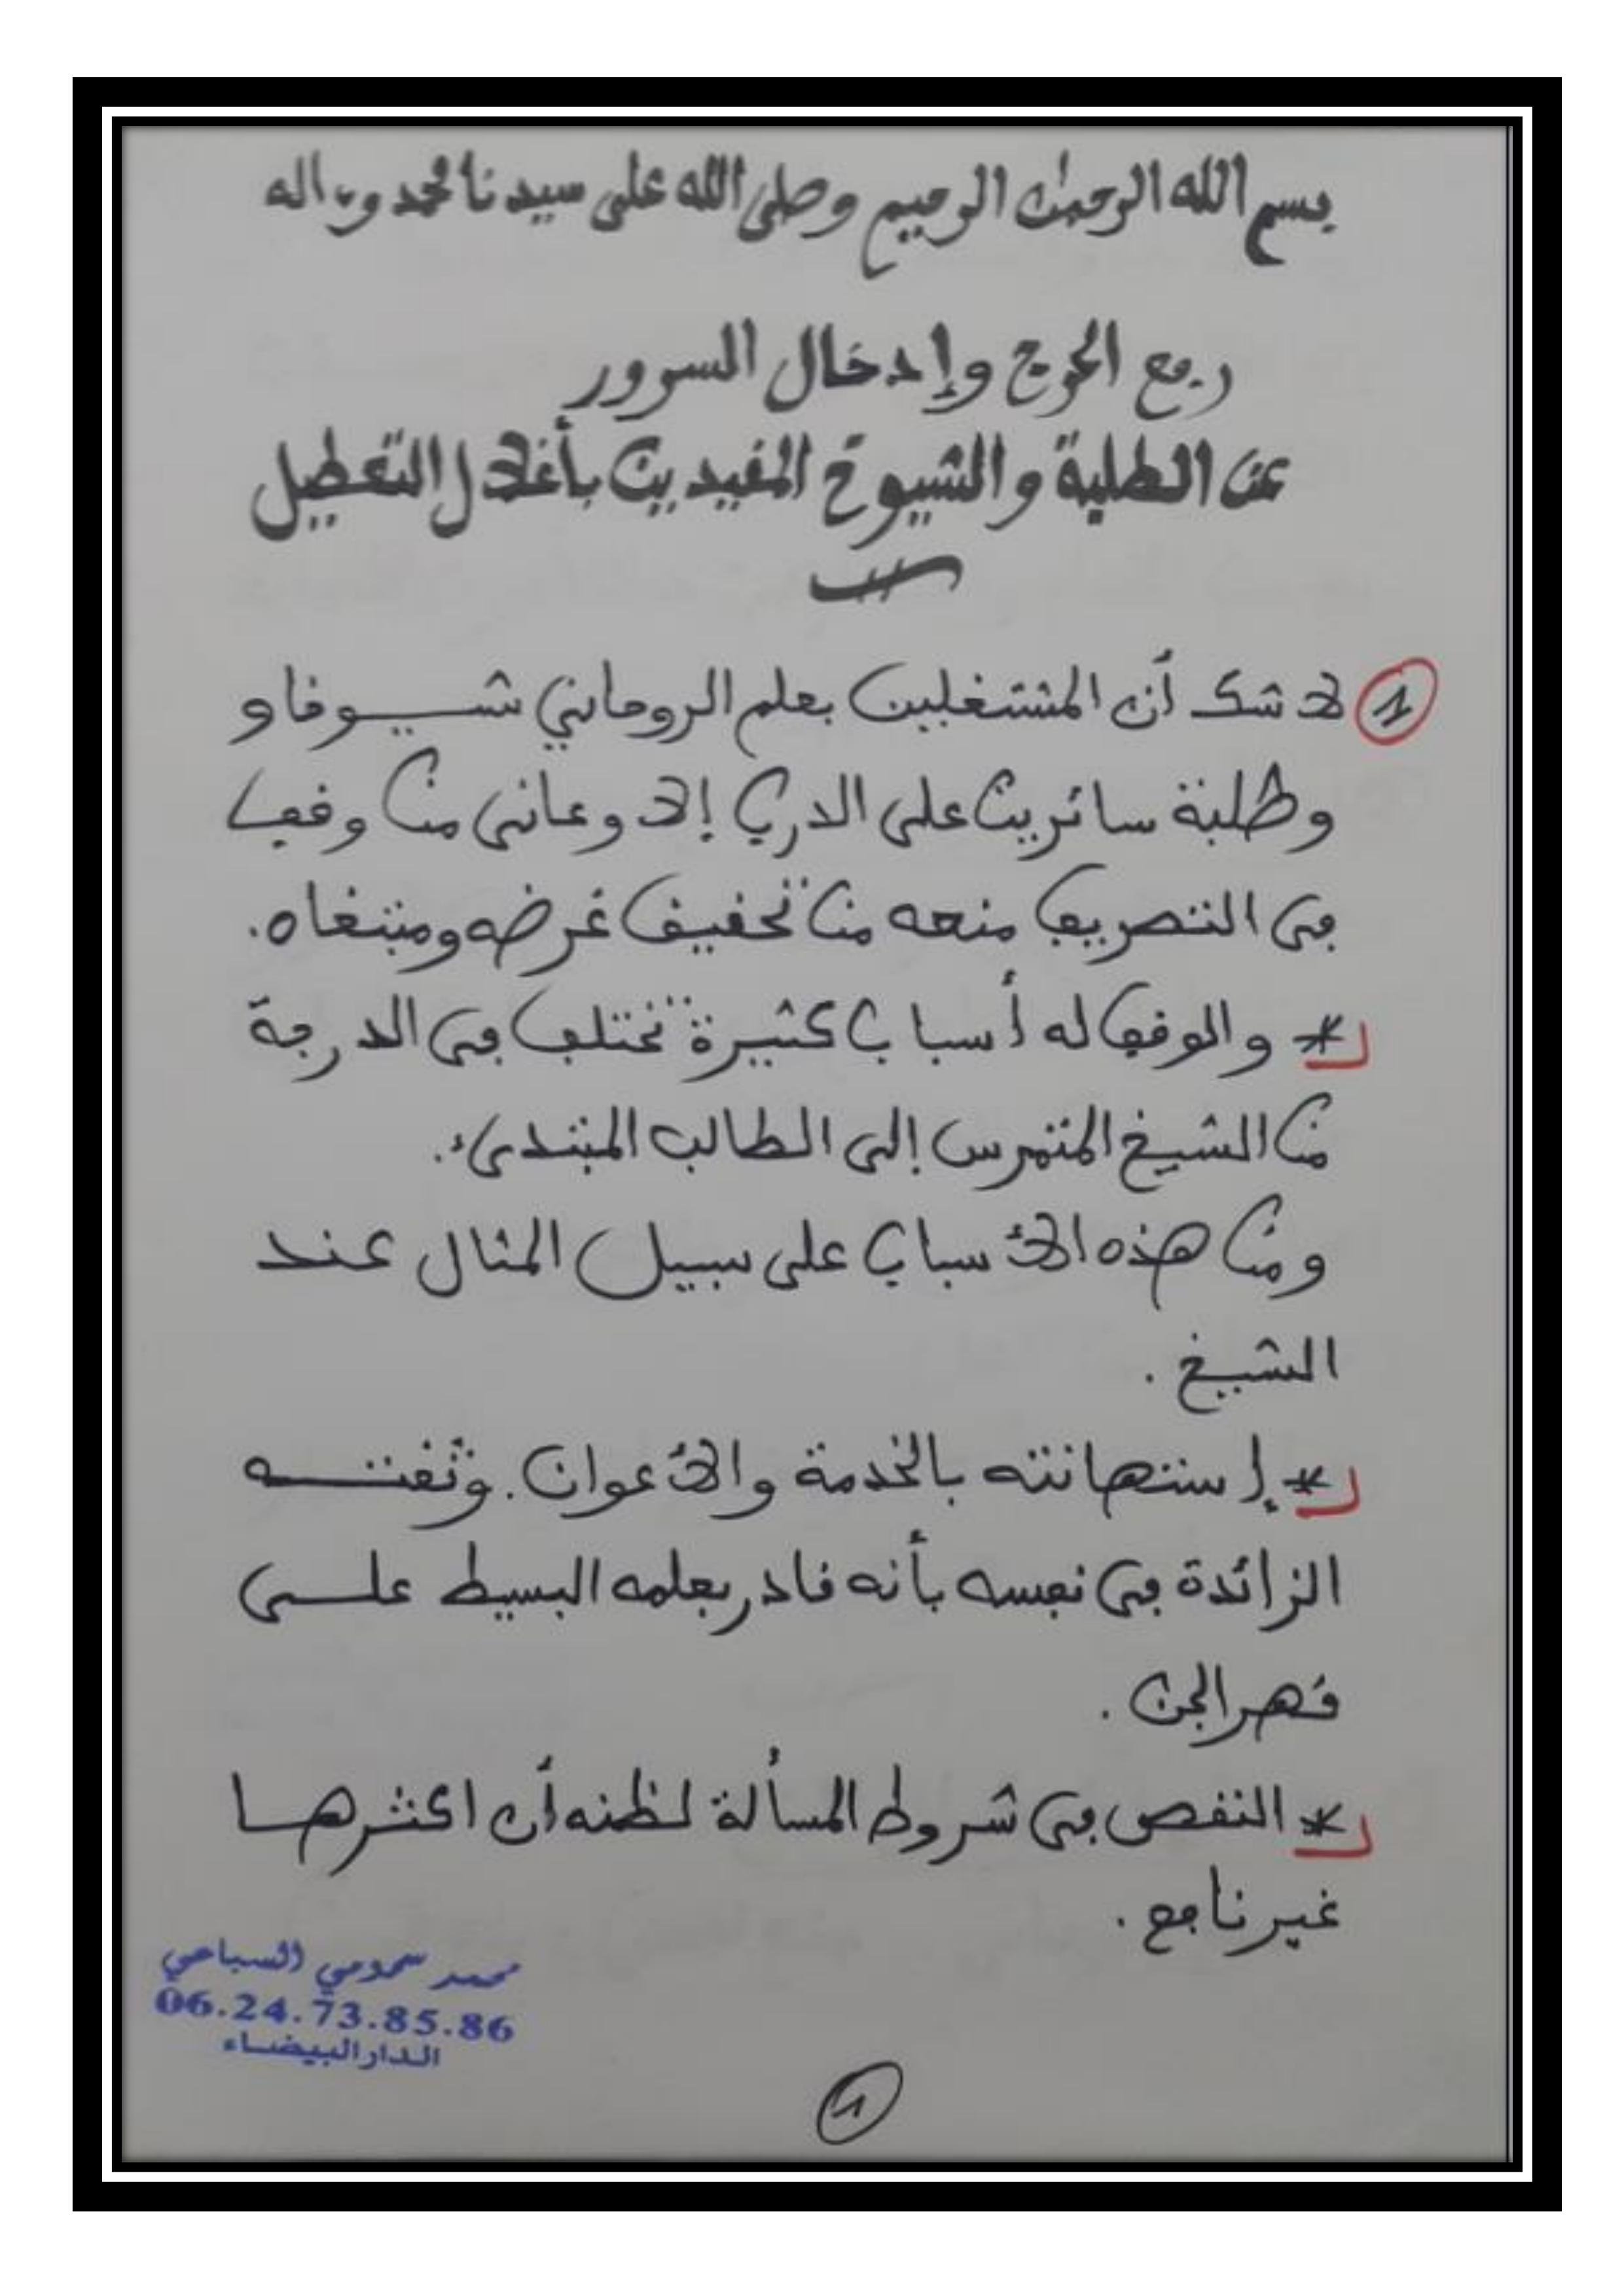 بسم الله الرحمن الرحيم وصلى الله على سيدنا محمد وءاله
رفع الحرج وإدخال السرور
عن الطلبة والشيوخ المقيدين بأغلال التعطيل
1 لا شك أن المشتغلين بعلم الروحاني شيوخا و
وطلبة سائرين على الدرب إلا وعانى من وقف
في التصريف منعه من تحقيق غرضه ومبتغاه.
* والوقف له أسباب كثيرة تختلف في الدرجة
من الشيخ المتمرس إلى الطالب المبتدىء.
ومن هذه الأسباب على سبيل المثال عند
الشيخ .
* إستهانته بالخدمة والأعوان. وثقته
الزائدة في نفسه بأنه قادر بعلمه البسيط على
قهر الجن .
* النقص في شروط المسألة لظنه أن اكثرها
غير ناجح .
محمد سحومي السباعي
06.24.73.85.86
الدار البيضاء
1